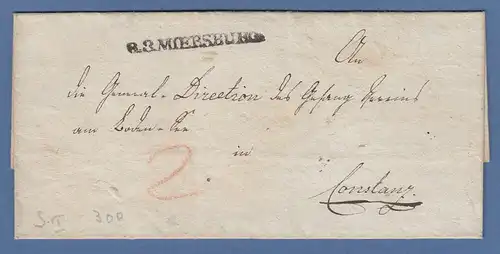 R.3.MOERSBURG
An
die General-Direction des Gesang Vereins
am Boden-See
in
2
Constanz.
300